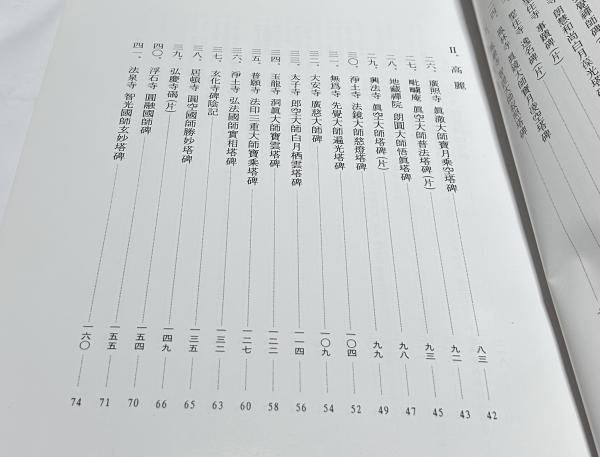 朗慧和尙白月葆光塔碑
聖住寺 事蹟碑(片)
聖住寺 逸名碑(片)
鳳林寺 眞鏡大師寶月凌空塔碑
II. 高麗
二六、廣照寺 眞澈大師寶月乘空塔碑 八三 42
二七、毗盧庵 眞空大師普法塔碑(片) 九二 43
二八、地藏禪院 朗圓大師悟眞塔碑 九三 45
二九、興法寺 眞空大師塔碑(片) 九八 47
三〇、淨土寺 法鏡大師慈燈塔碑 九九 49
三一、無爲寺 先覺大師遍光塔碑 一〇四 52
三二、大安寺 廣慈大師碑 一〇九 54
三三、太子寺 郎空大師白月栖雲塔碑 一一四 56
三四、玉龍寺 洞眞大師寶雲塔碑 一二二 58
三五、普願寺 法印三重大師寶乘塔碑 一二七 60
三六、淨土寺 弘法國師實相塔碑 一三二 63
三七、玄化寺碑陰記 一三五 65
三八、居頓寺 圓空國師勝妙塔碑 一四九 66
三九、弘慶寺碣(片) 一五四 70
四〇、浮石寺 圓融國師碑 一五五 71
四一、法泉寺 智光國師玄妙塔碑 一六〇 74